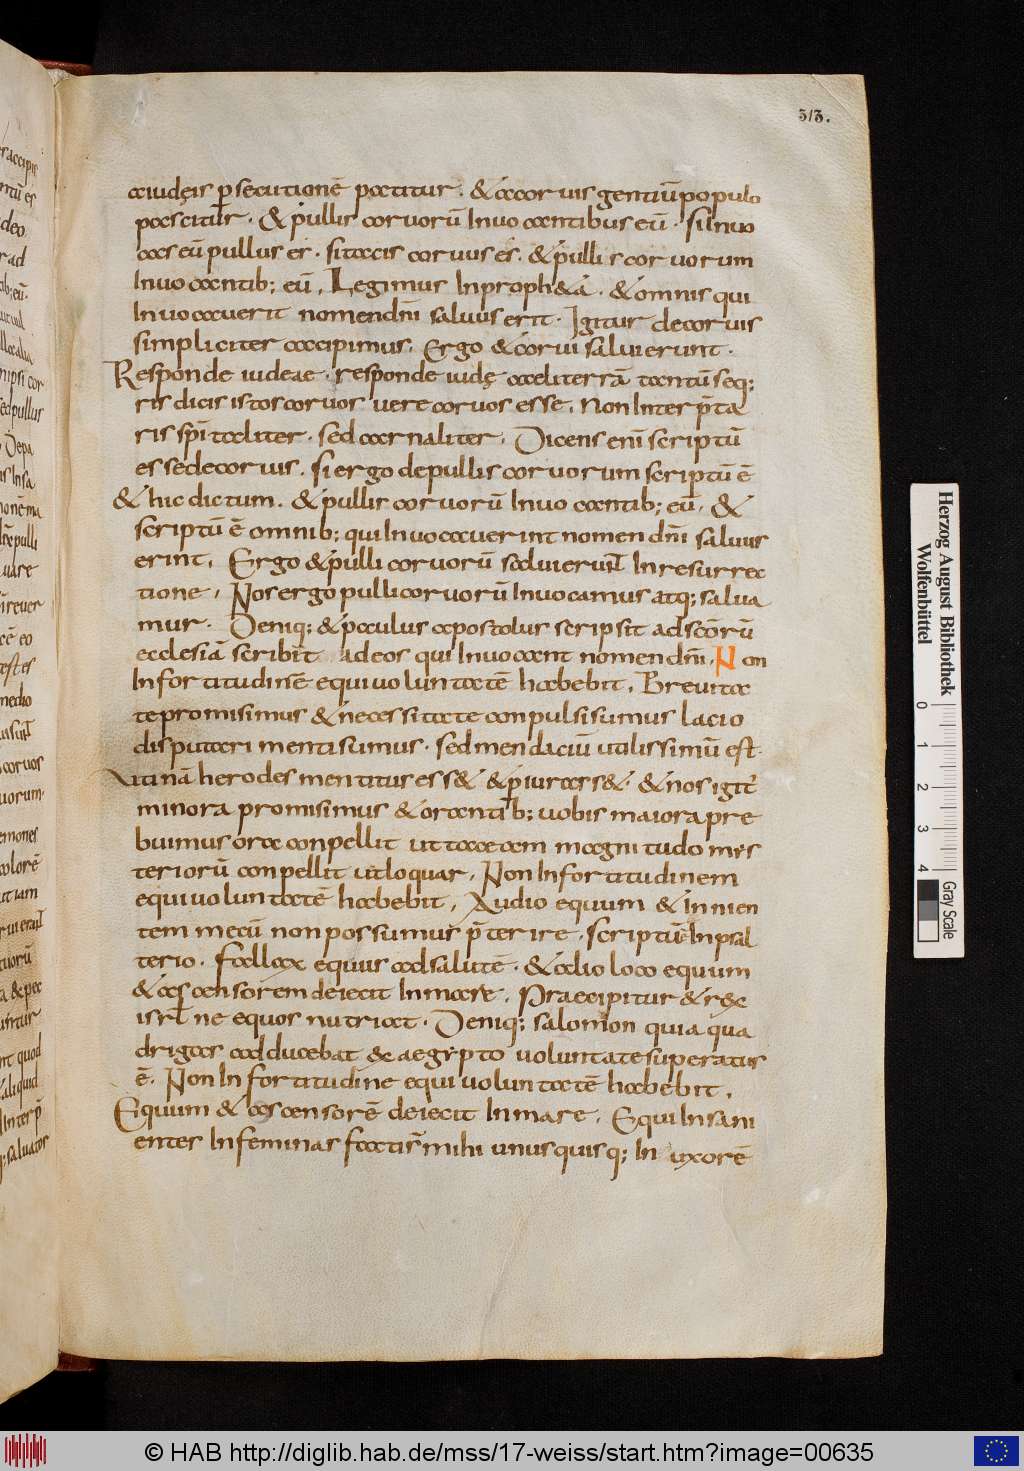 313.
aiudęis psecutionē patitur. & acoruis gentiū populo
pascitur. & pullis coruorū Inuocantibus eū. si Inuo
cas eū pullus es. si taces coruus es. & pulli s coruorum
Inuocantib; eū. Legimus In proph&a. & omnis qui
Inuocauerit nomen dn̄i saluus erit. Igitur decoruis
simpliciter accipimus. Ergo & corui saluierunt.
Responde iudeae. responde iudę ad literrā tantū seq;
ris dicis istos coruos vere coruos esse. Non Inter p̄ta
ris sp̄i taliter. sed carnaliter. Dicens eni scriptū
es sede coruis. si ergo depullis coruorum scriptū ē
& hic dictum. & pullis coruorū Inuocantib; eū. &
scriptū ē omnib; qui Inuocauerint nomen dn̄i saluus
erint. Ergo & pulli coruorū saluierunt In resurrec
tione. Nos ergo pulli coruorū Inuocamus atq; salua
mur. Deniq; & paulus apostolus scripsit ad scōrū
ecclesiā scribit adeos qui Inuocant nomen dn̄i. Non
In fortitudine equi uoluntatē habebit. Breuita
te promisimus & necessitate conpulsi sumus lacio
disputari mentisumus. sed mendaciū utilissimū est.
Vtinā herodes mentitus ess& & piuras s&. & nos igit̄
minora promisimus & orantib; uobis maiora pre
buimus ora conpellit ut taceam magnitudo mis
teriorū conpellit ut loquar. Non In fortitudinem
equi uoluntatē habebit. Audio equum & In men
tem mecū non possumus p̄terire. scriptū ē In psal
terio. fallax equus ad salutē. & alio loco equum
& ascensorem deiecit In mare. Praecipitur & r&
isrl̄ ne equos nutriat. Deniq; salomon quia qua
drigas adducebat & aegypto uoluntate superatus
ē. Non In fortitudine equi uoluntatē habebit.
Equum & ascensorē deiecit In mare. Equi Insani
enter In feminas facti s̄ mihi unusquisq; In uxorē
Herzog August Bibliothek
Wolfenbüttel
0 1 2 3 4
Gray Scale
© HAB http://diglib.hab.de/mss/17-weiss/start.htm?image=00635